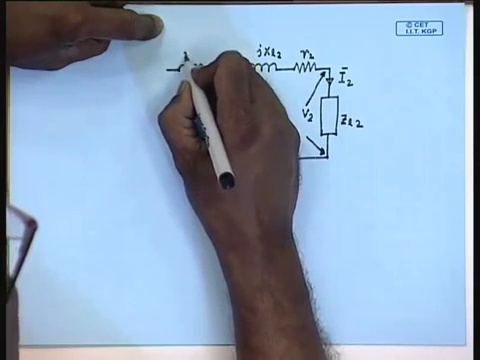 © CET
I.I.T. KGP
jx₂₂ r₂
Ī₂
V₂
Z₂₂